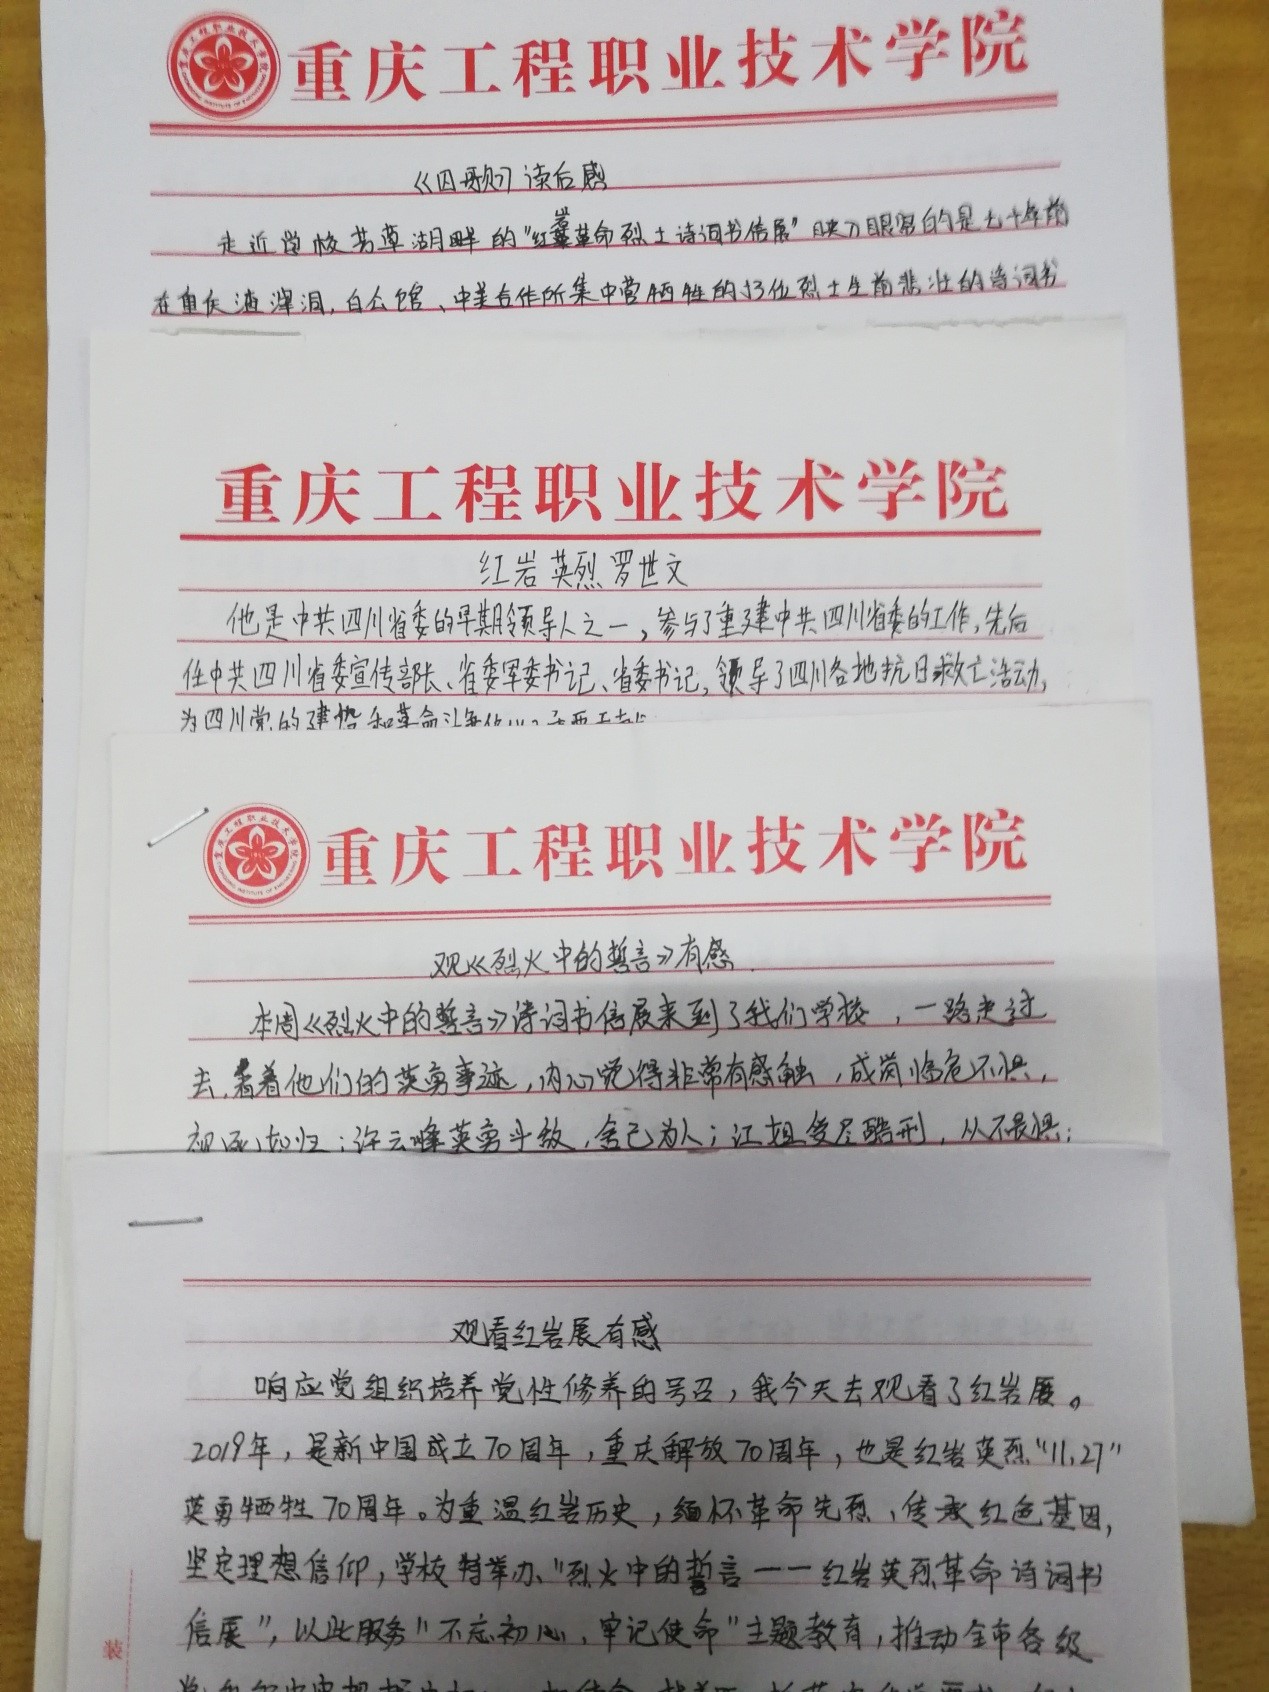 重庆工程职业技术学院
《囚歌》读后感
走近学校芳草湖畔的“红岩革命烈士诗词书信展”映入眼帘的是七十年前
在重庆渣滓洞，白公馆、中美合作所集中营牺牲的13位烈士生前悲壮的诗词书
重庆工程职业技术学院
红岩英烈罗世文
他是中共四川省委的早期领导人之一，参与了重建中共四川省委的工作，先后
任中共四川省委宣传部长、省委军委书记、省委书记，领导了四川各地抗日救亡活动，
为四川党的建设和革命斗争作出了重要贡献
重庆工程职业技术学院
观《烈火中的誓言》有感
本周《烈火中的誓言》诗词书信展来到了我们学校，一路走过
去，看着他们的英勇事迹，内心觉得非常有感触，成岗临危不惧，
视死如归；许云峰英勇斗敌，舍己为人；江姐受尽酷刑，从不畏惧；
观看红岩展有感
响应党组织培养党性修养的号召，我今天去观看了红岩展。
2019年，是新中国成立70周年，重庆解放70周年，也是红岩英烈“11.27”
英勇牺牲70周年。为重温红岩历史，缅怀革命先烈，传承红色基因，
坚定理想信仰，学校特举办“烈火中的誓言——红岩英烈革命诗词书
信展”，以此服务“不忘初心、牢记使命”主题教育，推动全市各级
装